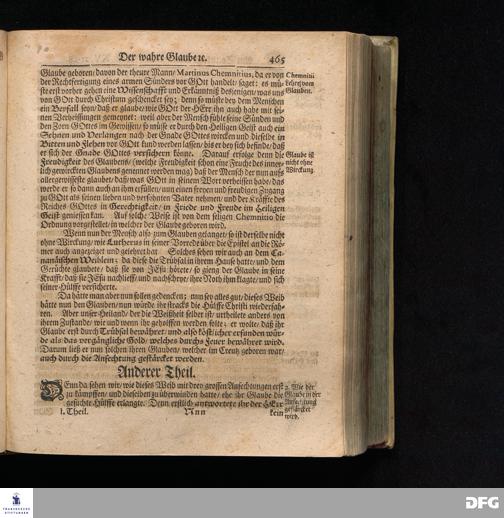 Der wahre Glaube ꝛc. 465
Glaube geboren/ davon der theure Mann/ Martinus Chemnitius, da er von
der Rechtfertigung eines armen Sünders vor GOtt handelt/ saget: es mü-
ste erst vorher gehen eine Wissenschafft und Erkäntniß desjenigen/ was uns
von GOtt durch Christum geschencket sey; denn so müste bey dem Menschen
ein Beyfall seyn/ daß er glaube/ wie GOtt der HErr ihn auch habe mit sei-
nen Verheissungen gemeynet: weil aber der Mensch fühle seine Sünden und
den Zorn GOttes im Gewissen/ so müste er durch den Heiligen Geist auch ein
Sehnen und Verlangen nach der Gnade GOttes wircken und dieselbe in
Bitten und Flehen vor GOtt kund werden lassen/ bis er bey sich befinde/ daß
er sich der Gnade GOttes versichern könne. Darauf erfolge denn die
Freudigkeit des Glaubens/ (welche Freudigkeit schon eine Frucht des inner-
lich gewirckten Glaubens genennet werden mag) daß der Mensch der nun aufs
allergewisseste glaube/ daß was GOtt in seinem Wort verheissen habe/ das
werde er so dann auch an ihm erfüllen/ nun einen freyen und freudigen Zugang
zu GOtt als seinen lieben und versöhnten Vater nehmen/ und der Kräffte des
Reiches GOttes in Gerechtigkeit/ in Friede und Freude im Heiligen
Geist geniessen kan. Auf solche Weise ist von dem seligen Chemnitio die
Ordnung vorgestellet/ in welcher der Glaube geboren wird.
Wenn nun der Mensch also zum Glauben gelanget/ so ist derselbe nicht
ohne Wirckung/ wie Lutherus in seiner Vorrede über die Epistel an die Rö-
mer auch angezeiget und gelehret hat. Solches sehen wir auch an dem Ca-
nanäischen Weiblein; da diese die Trübsal in ihrem Hause hatte/ und dem
Gerüchte glaubete/ daß sie von JEsu hörete/ so gieng der Glaube in seine
Krafft/ daß sie JEsu nachlieff/ und nachschrye/ ihre Noth ihm klagte/ und sich
seiner Hülffe versicherte.
Da hätte man aber nun sollen gedencken; nun sey alles gut/ dieses Weib
hätte nun den Glauben/ nun würde ihr stracks die Hülffe Christi wiederfah-
ren. Aber unser Heiland/ der die Weißheit selber ist/ urtheilete anders von
ihrem Zustande/ wie und wenn ihr geholffen werden solte; er wolte/ daß ihr
Glaube erst durch Trübsal bewähret/ und also köstlicher erfunden wür-
de als das vergängliche Gold/ welches durchs Feuer bewähret wird.
Darum ließ er nun solchen ihren Glauben/ welcher im Creutz geboren war/
auch durch die Anfechtung gestärcket werden.
Anderer Theil.
DEnn da sehen wir/ wie dieses Weib mit drey grossen Anfechtungen erst
zu kämpffen/ und dieselben zu überwinden hatte/ ehe ihr Glaube die
gesuchte Hülffe erlangte. Denn erstlich antwortete ihr der HErr
I. Theil. Nnn kein
Chemnitii
Lehre vom
Glauben.
Glaube ist
nicht ohne
Wirckung.
2. Wie der
Glaube in der
Anfechtung
gestärcket
wird.
FRANCKESCHE
STIFTUNGEN
DFG